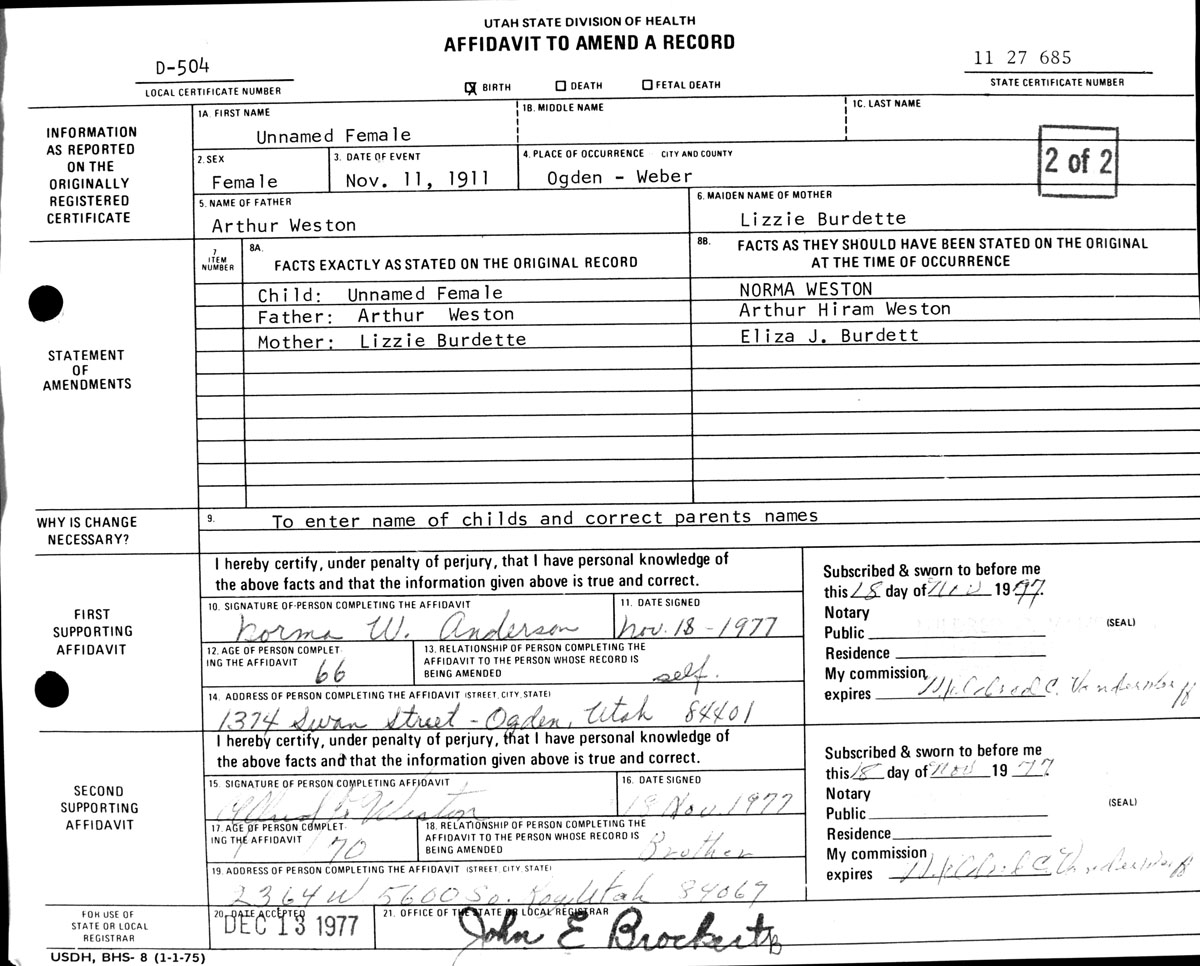 UTAH STATE DIVISION OF HEALTH
AFFIDAVIT TO AMEND A RECORD
D-504
LOCAL CERTIFICATE NUMBER
X BIRTH DEATH FETAL DEATH
11 27 685
STATE CERTIFICATE NUMBER
INFORMATION AS REPORTED ON THE ORIGINALLY REGISTERED CERTIFICATE
1A. FIRST NAME
Unnamed Female
1B. MIDDLE NAME
1C. LAST NAME
2. SEX
Female
3. DATE OF EVENT
Nov. 11, 1911
4. PLACE OF OCCURRENCE CITY AND COUNTY
Ogden - Weber
2 of 2
5. NAME OF FATHER
Arthur Weston
6. MAIDEN NAME OF MOTHER
Lizzie Burdette
STATEMENT OF AMENDMENTS
7 ITEM NUMBER
8A. FACTS EXACTLY AS STATED ON THE ORIGINAL RECORD
8B. FACTS AS THEY SHOULD HAVE BEEN STATED ON THE ORIGINAL
AT THE TIME OF OCCURRENCE
Child: Unnamed Female NORMA WESTON
Father: Arthur Weston Arthur Hiram Weston
Mother: Lizzie Burdette Eliza J. Burdett
WHY IS CHANGE NECESSARY?
9. To enter name of childs and correct parents names
FIRST SUPPORTING AFFIDAVIT
I hereby certify, under penalty of perjury, that I have personal knowledge of
the above facts and that the information given above is true and correct.
10. SIGNATURE OF PERSON COMPLETING THE AFFIDAVIT
Norma W. Anderson
11. DATE SIGNED
Nov. 18-1977
12. AGE OF PERSON COMPLET-
ING THE AFFIDAVIT 66
13. RELATIONSHIP OF PERSON COMPLETING THE
AFFIDAVIT TO THE PERSON WHOSE RECORD IS
BEING AMENDED self.
14. ADDRESS OF PERSON COMPLETING THE AFFIDAVIT (STREET, CITY, STATE)
1374 Swan Street - Ogden, Utah 84401
Subscribed & sworn to before me
this 18 day of Nov 1977.
Notary
Public (SEAL)
Residence
My commission
expires
SECOND SUPPORTING AFFIDAVIT
I hereby certify, under penalty of perjury, that I have personal knowledge of
the above facts and that the information given above is true and correct.
15. SIGNATURE OF PERSON COMPLETING AFFIDAVIT
Weston
16. DATE SIGNED
18 Nov. 1977
17. AGE OF PERSON COMPLET-
ING THE AFFIDAVIT 70
18. RELATIONSHIP OF PERSON COMPLETING THE
AFFIDAVIT TO THE PERSON WHOSE RECORD IS
BEING AMENDED Brother
19. ADDRESS OF PERSON COMPLETING THE AFFIDAVIT (STREET, CITY, STATE)
2364 W 5600 So. Roy Utah 84067
Subscribed & sworn to before me
this 18 day of Nov 1977
Notary
Public (SEAL)
Residence
My commission
expires
FOR USE OF STATE OR LOCAL REGISTRAR
20. DATE ACCEPTED
DEC 13 1977
21. OFFICE OF THE STATE OR LOCAL REGISTRAR
John E Brockert
USDH, BHS- 8 (1-1-75)